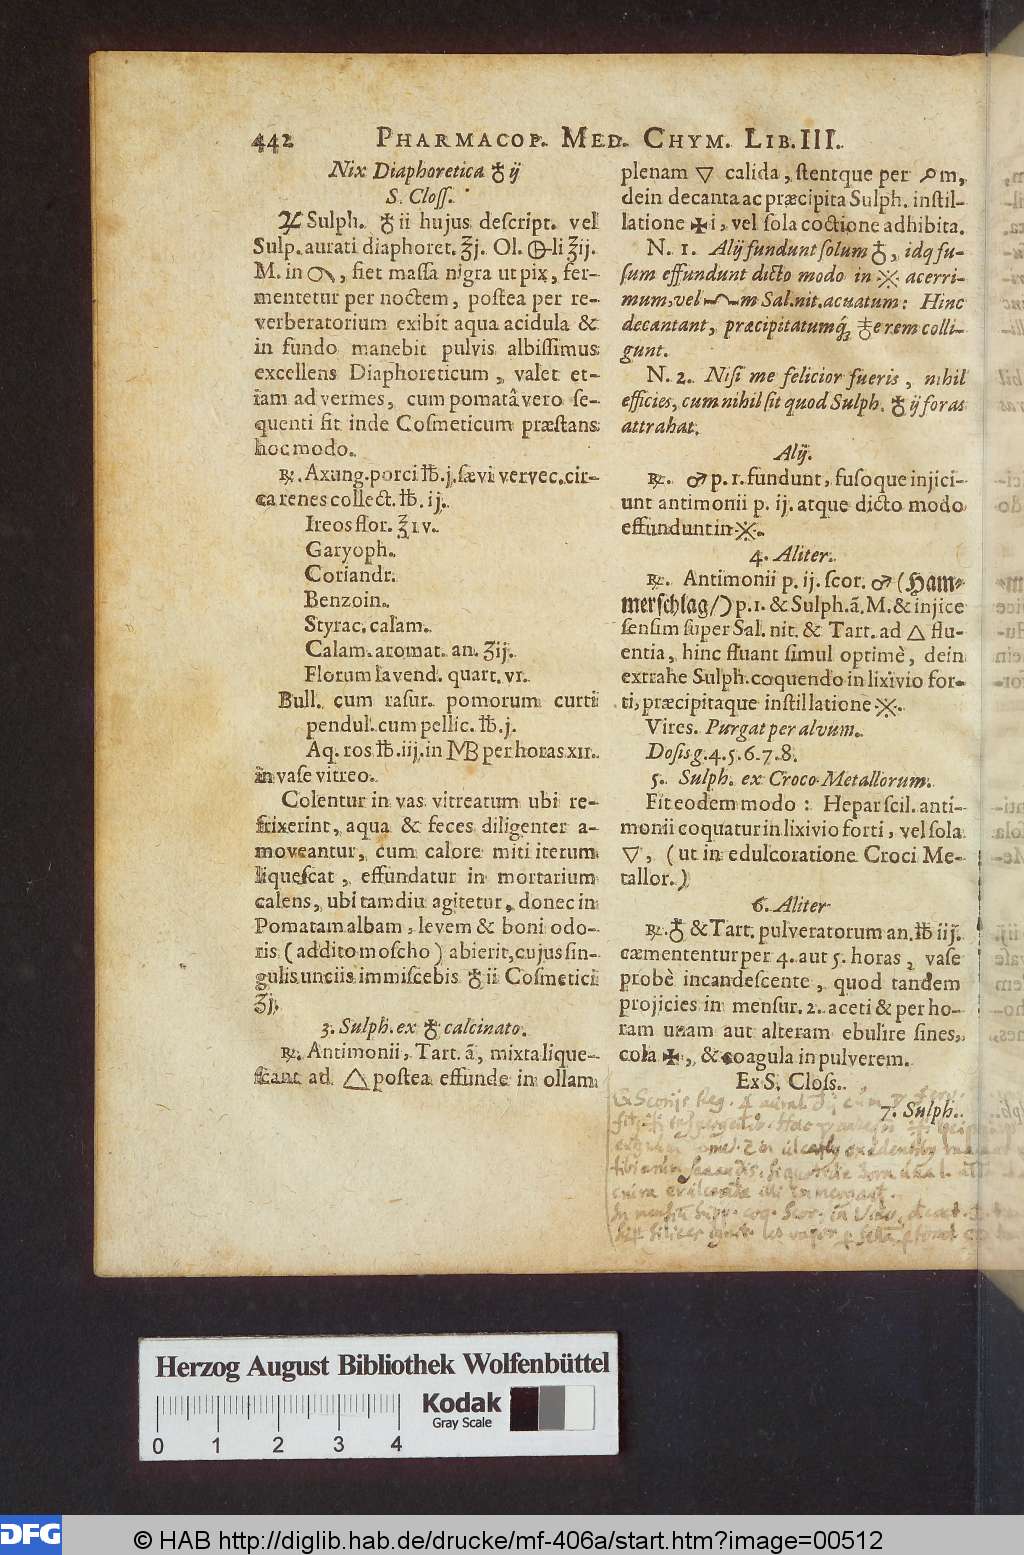 442 PHARMACOP. MED. CHYM. LIB. III.
Nix Diaphoretica ♁ ij
S. Closs.
♃ Sulph. ♁ ii hujus descript. vel
Sulp. aurati diaphoret. ʒj. Ol. li ʒij.
M. in, fiet massa nigra ut pix, fer-
mentetur per noctem, postea per re-
verberatorium exibit aqua acidula &
in fundo manebit pulvis albissimus
excellens Diaphoreticum, valet et-
iam ad vermes, cum pomatâ vero se-
quenti fit inde Cosmeticum præstans
hoc modo.
℞. Axung. porci ℔. j. sævi vervec. cir-
ca renes collect. ℔. ij.
Ireos flor. ℥ iv.
Garyoph.
Coriandr.
Benzoin.
Styrac. calam.
Calam. aromat. an. ʒij.
Florum lavend. quart. vi.
Bull. cum rasur. pomorum curti
pendul. cum pellic. ℔. j.
Aq. ros ℔. iij. in MB per horas xii.
in vase vitreo.
Colentur in vas vitreatum ubi re-
frixerint, aqua & feces diligenter a-
moveantur, cum calore miti iterum
liquescat, effundatur in mortarium
calens, ubi tamdiu agitetur, donec in
Pomatam albam, levem & boni odo-
ris (addito moscho) abierit, cujus sin-
gulis unciis immiscebis ♁ ii Cosmetici
ʒj.
3. Sulph. ex ♁ calcinato.
℞. Antimonii, Tart. ā, mixta lique-
scant ad 🜂 postea effunde in ollam
plenam 🜄 calida, stentque per m,
dein decanta ac præcipita Sulph. instil-
latione ✠i, vel sola coctione adhibita.
N. 1. Alij fundunt solum ♁, idq fu-
sum effundunt dicto modo in ※ acerri-
mum, vel m Sal. nit. acuatum: Hinc
decantant, præcipitatumq́ue ♁ erem colli-
gunt.
N. 2. Nisi me felicior fueris, nihil
efficies, cum nihil sit quod Sulph. ♁ ij foras
attrahat.
Alij.
℞. ♂ p. 1. fundunt, fusoque injici-
unt antimonii p. ij. atque dicto modo
effundunt in ※.
4. Aliter.
℞. Antimonii p. ij. scor. ♂ (Ham-
merschlag/) p. 1. & Sulph. ā. M. & injice
sensim super Sal. nit. & Tart. ad 🜂 flu-
entia, hinc fluant simul optimè, dein
extrahe Sulph. coquendo in lixivio for-
ti, præcipitaque instillatione ※.
Vires. Purgat per alvum.
Dosis g. 4. 5. 6. 7. 8.
5. Sulph. ex Croco Metallorum.
Fit eodem modo: Hepar scil. anti-
monii coquatur in lixivio forti, vel sola
🜄, (ut in edulcoratione Croci Me-
tallor.)
6. Aliter
℞. ♁ & Tart. pulveratorum an. ℔ iij.
cæmententur per 4. aut 5. horas, vase
probè incandescente, quod tandem
projicies in mensur. 2. aceti & per ho-
ram unam aut alteram ebulire sines,
cola ✠, & coagula in pulverem.
Ex S. Closs.
7. Sulph.
Herzog August Bibliothek Wolfenbüttel
Kodak
Gray Scale
0 1 2 3 4
DFG
© HAB http://diglib.hab.de/drucke/mf-406a/start.htm?image=00512